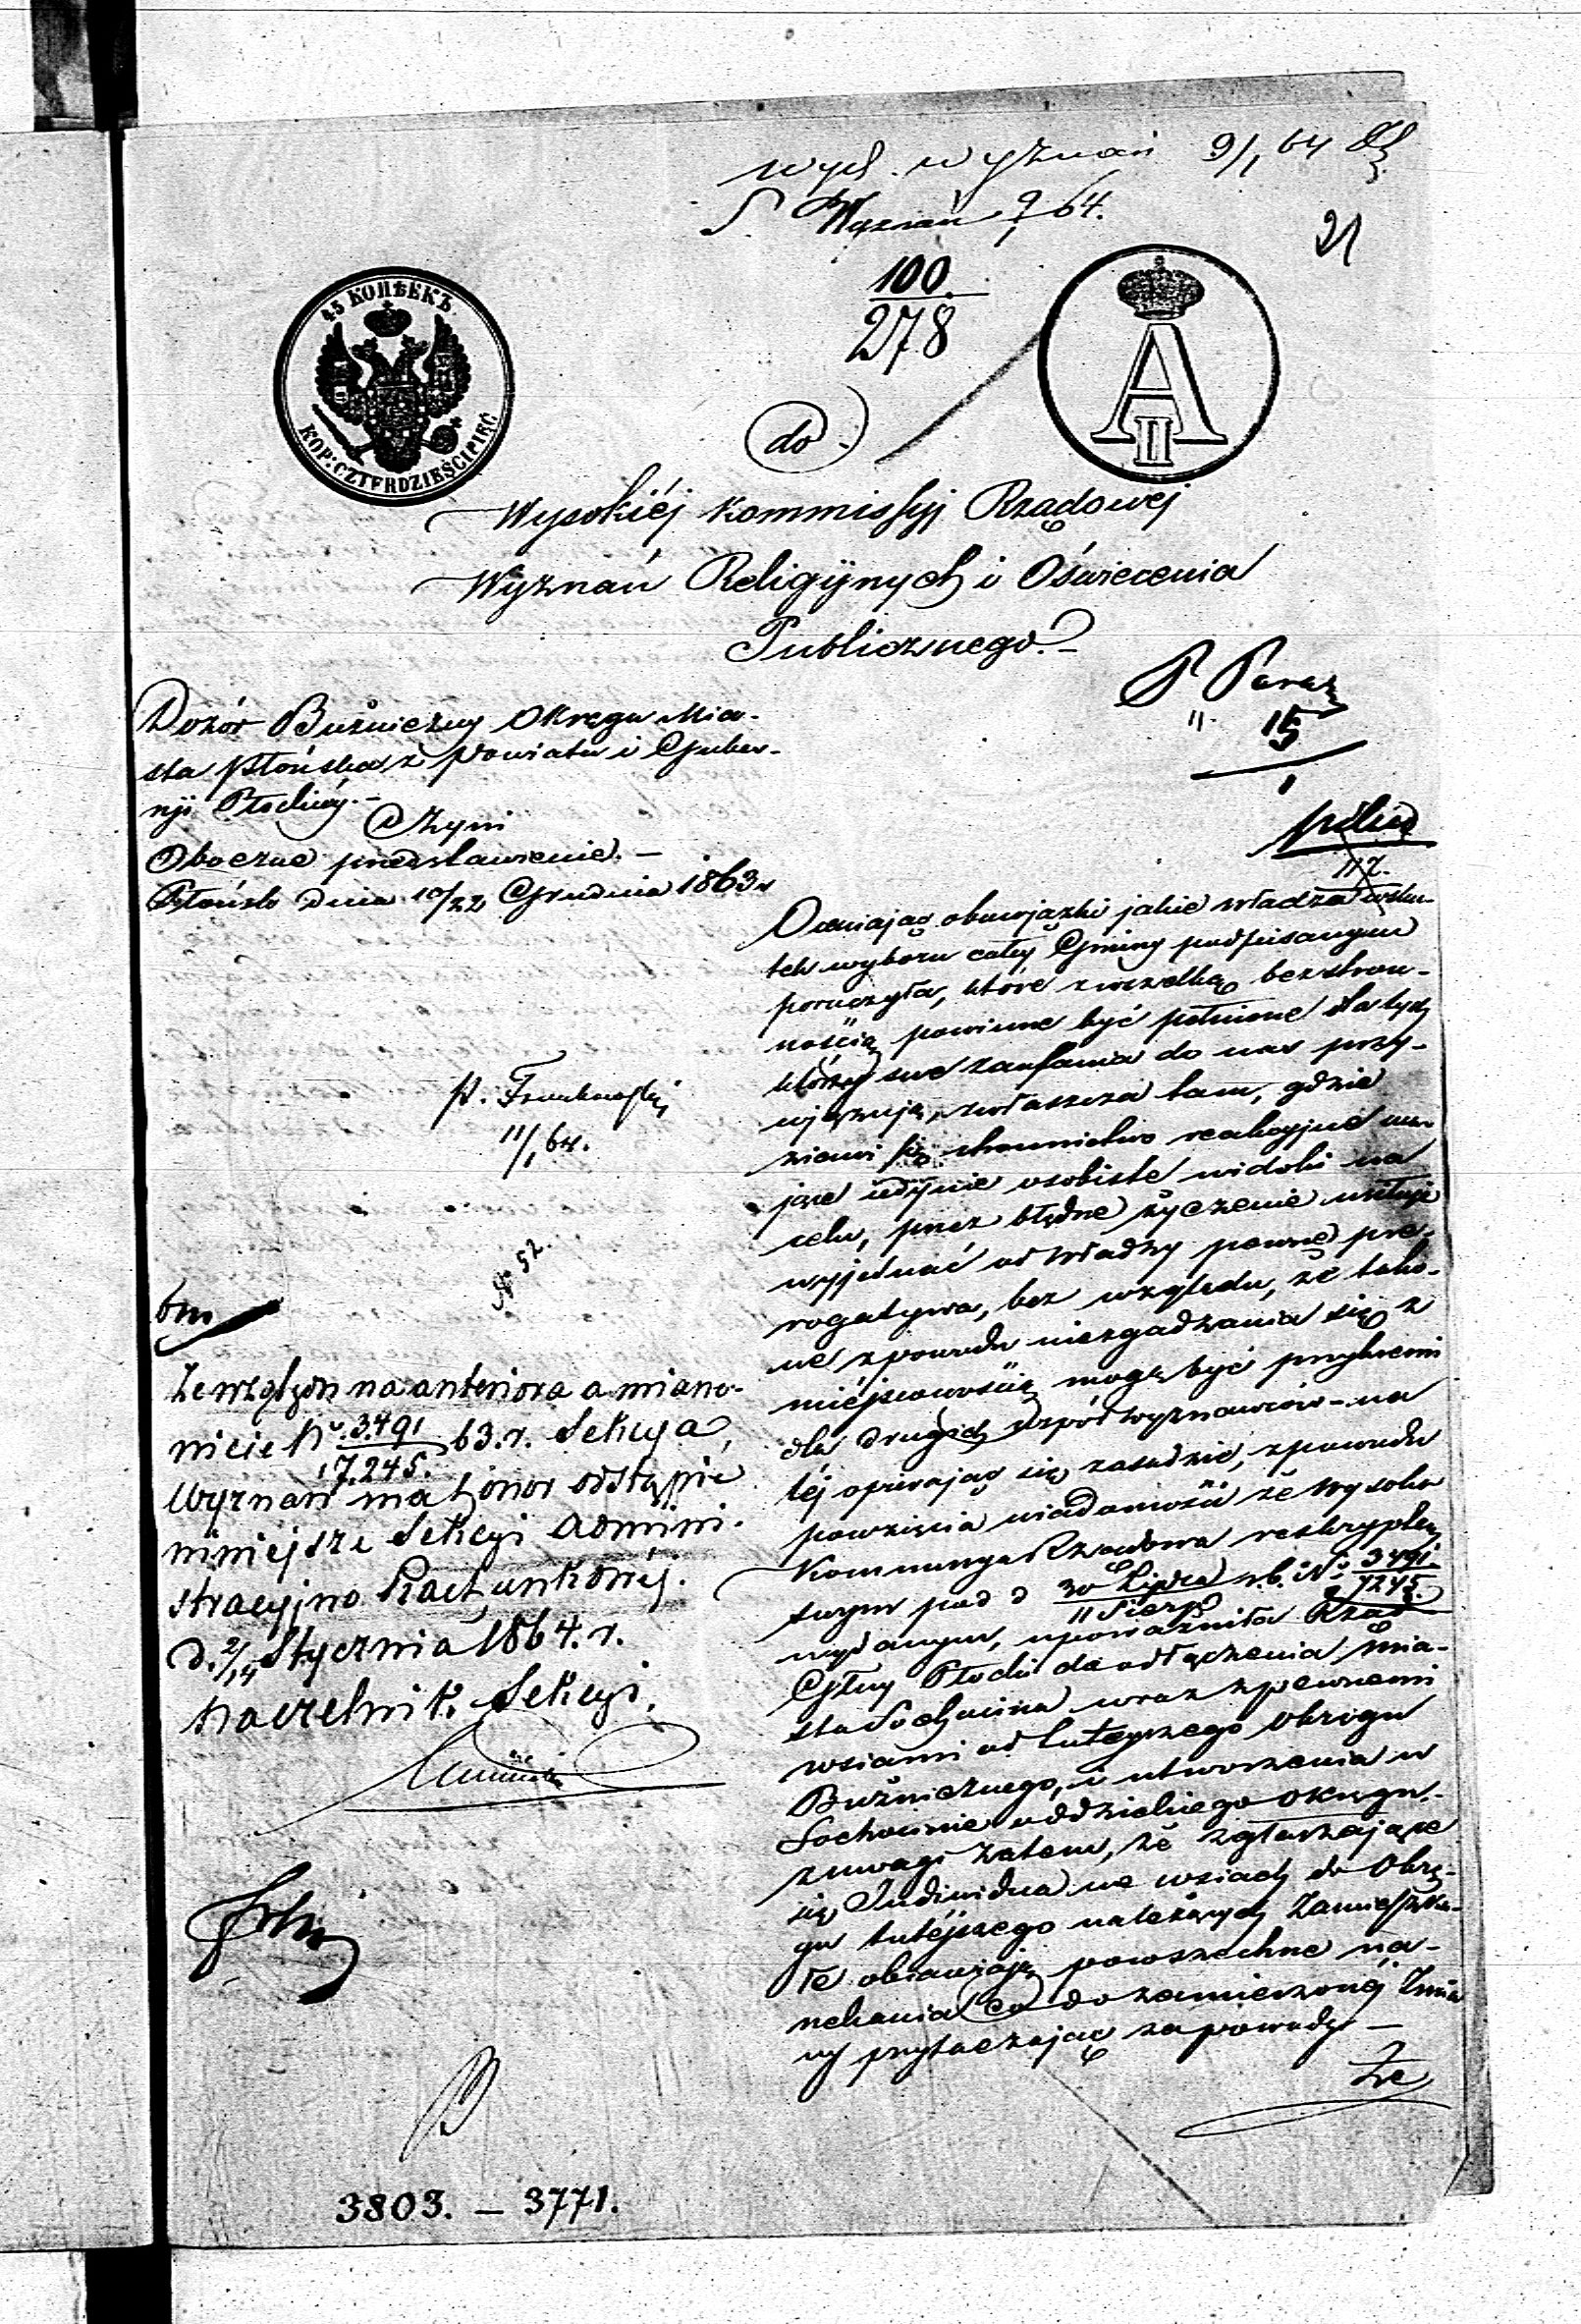 wych. wyznań 9/1 64
S. Wyznań 9/1 64.
21
45 КОПѢЕКЪ
KOP: CZTERDZIEŚCI PIĘĆ
100.
278
A II
do
Wysokiéj Kommissyj Rządowej
Wyznań Religijnych i Oświecenia
Publicznego.
P.
11. 15
1
pilno
117.
Dozór Bużniczny Okręgu Mia-
sta Płońska z Powiatu i Guber-
nji Płockiéj.-
Czyni
Oboczne przedstawienie.-
Płońsk Dnia 10/22 Grudnia 1863 r
p.
11/1 64.
N 52.
Ze względu na anteriora a miano-
wicie No 3.491/17.245. 63. r. Sekcya
Wyznań ma honor odstąpić
niniejsze Sekcyi Admini-
stracyjno Rachunkowéj.
d. 2/14 Stycznia 1864. r.
Naczelnik Sekcyi.
Oceniając obowiązki jakie władza wsku-
tek wyboru całéj Gminy podpisanym
poruczyła, które z wszelką bezstron-
nością powinne być pełnione dla tych
którzy swe zaufania do nas przy-
wjązują, zwłaszcza tam, gdzie
zjawi się stronnictwo reakcyjne ma-
jące jedynie osobiste widoki na
celu, przez błędne życzenie usiłuje
wyjednać od Władzy pewne pre-
rogatywa, bez względu, że tako-
we z powodu niezgadzania się z
miéjscowością mogą być przykremi
dla drugich współwyznawców - na
téj opierając się zasadzie, z powodu
powzięcia wiadomości że Wysoka
Kommissya Rządowa reskryptem
swym pod d 30 Lipca/11 Sierp r.b. No 3491/7245.
wydanym, upoważniła Rząd
Gbny Płocki do odłączenia mia-
sta Sochocina wraz z pewnemi
wsiami od tutejszego okręgu
Bużnicznego, i utworzenia w
Sochocinie oddzielnego okręgu.-
z uwagi zatem, że zgłaszające
się Indiwidua we wsiach do Okrę-
gu tutéjszego należących zamieszka-
łe objawiają powszechne na-
rzekania co do zamierzonéj zmia
ny przytaczając za powody —
Że
3803. - 3771.